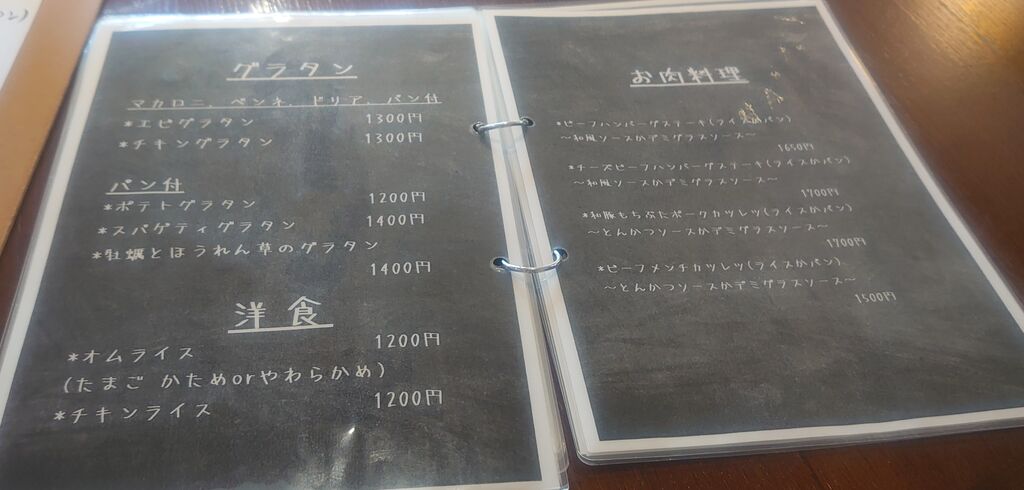 グラタン
マカロニ、ペンネ、ドリア、パン付
*エビグラタン 1300円
*チキングラタン 1300円
パン付
*ポテトグラタン 1200円
*スパゲティグラタン 1400円
*牡蠣とほうれん草のグラタン
1400円
洋食
*オムライス 1200円
(たまご かためorやわらかめ)
*チキンライス 1200円
お肉料理
*ビーフハンバーグステーキ(ライスかパン)
~和風ソースかデミグラスソース~
1650円
*チーズビーフハンバーグステーキ(ライスかパン)
~和風ソースかデミグラスソース~
1700円
*和豚もちぶたポークカツレツ(ライスかパン)
~とんかつソースかデミグラスソース~
1700円
*ビーフメンチカツレツ(ライスかパン)
~とんかつソースかデミグラスソース~
1500円